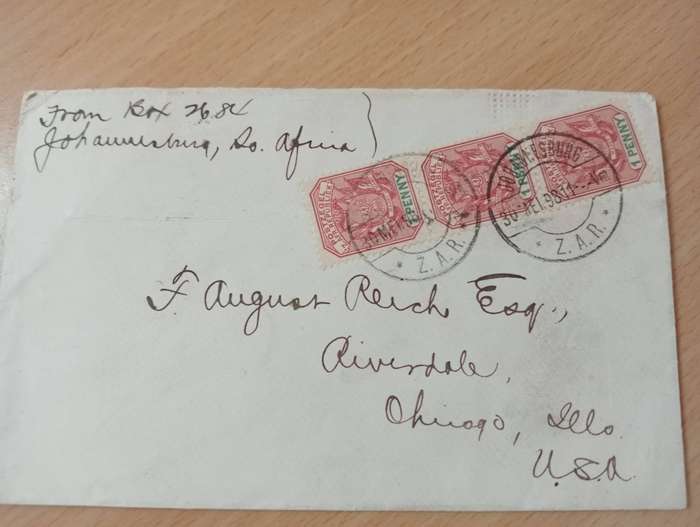 From Box 2684
Johannesburg, So. Africa
1 PENNY
1 PENNY
1 PENNY
POSTZEGEL
JOHANNESBURG
30 MEI 98
30 MEI 98
* Z.A.R. *
* Z.A.R. *
F August Reich Esq.,
Riverdale,
Chicago, Ills.
U.S.A.